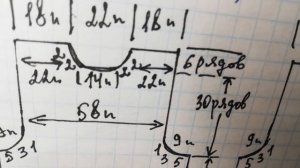 18п | 22п | 18п
2п 2п
22п 14п 22п 6 рядов
30 рядов
58п
9п 9п
5 3 1 1 3 5 5 3 1